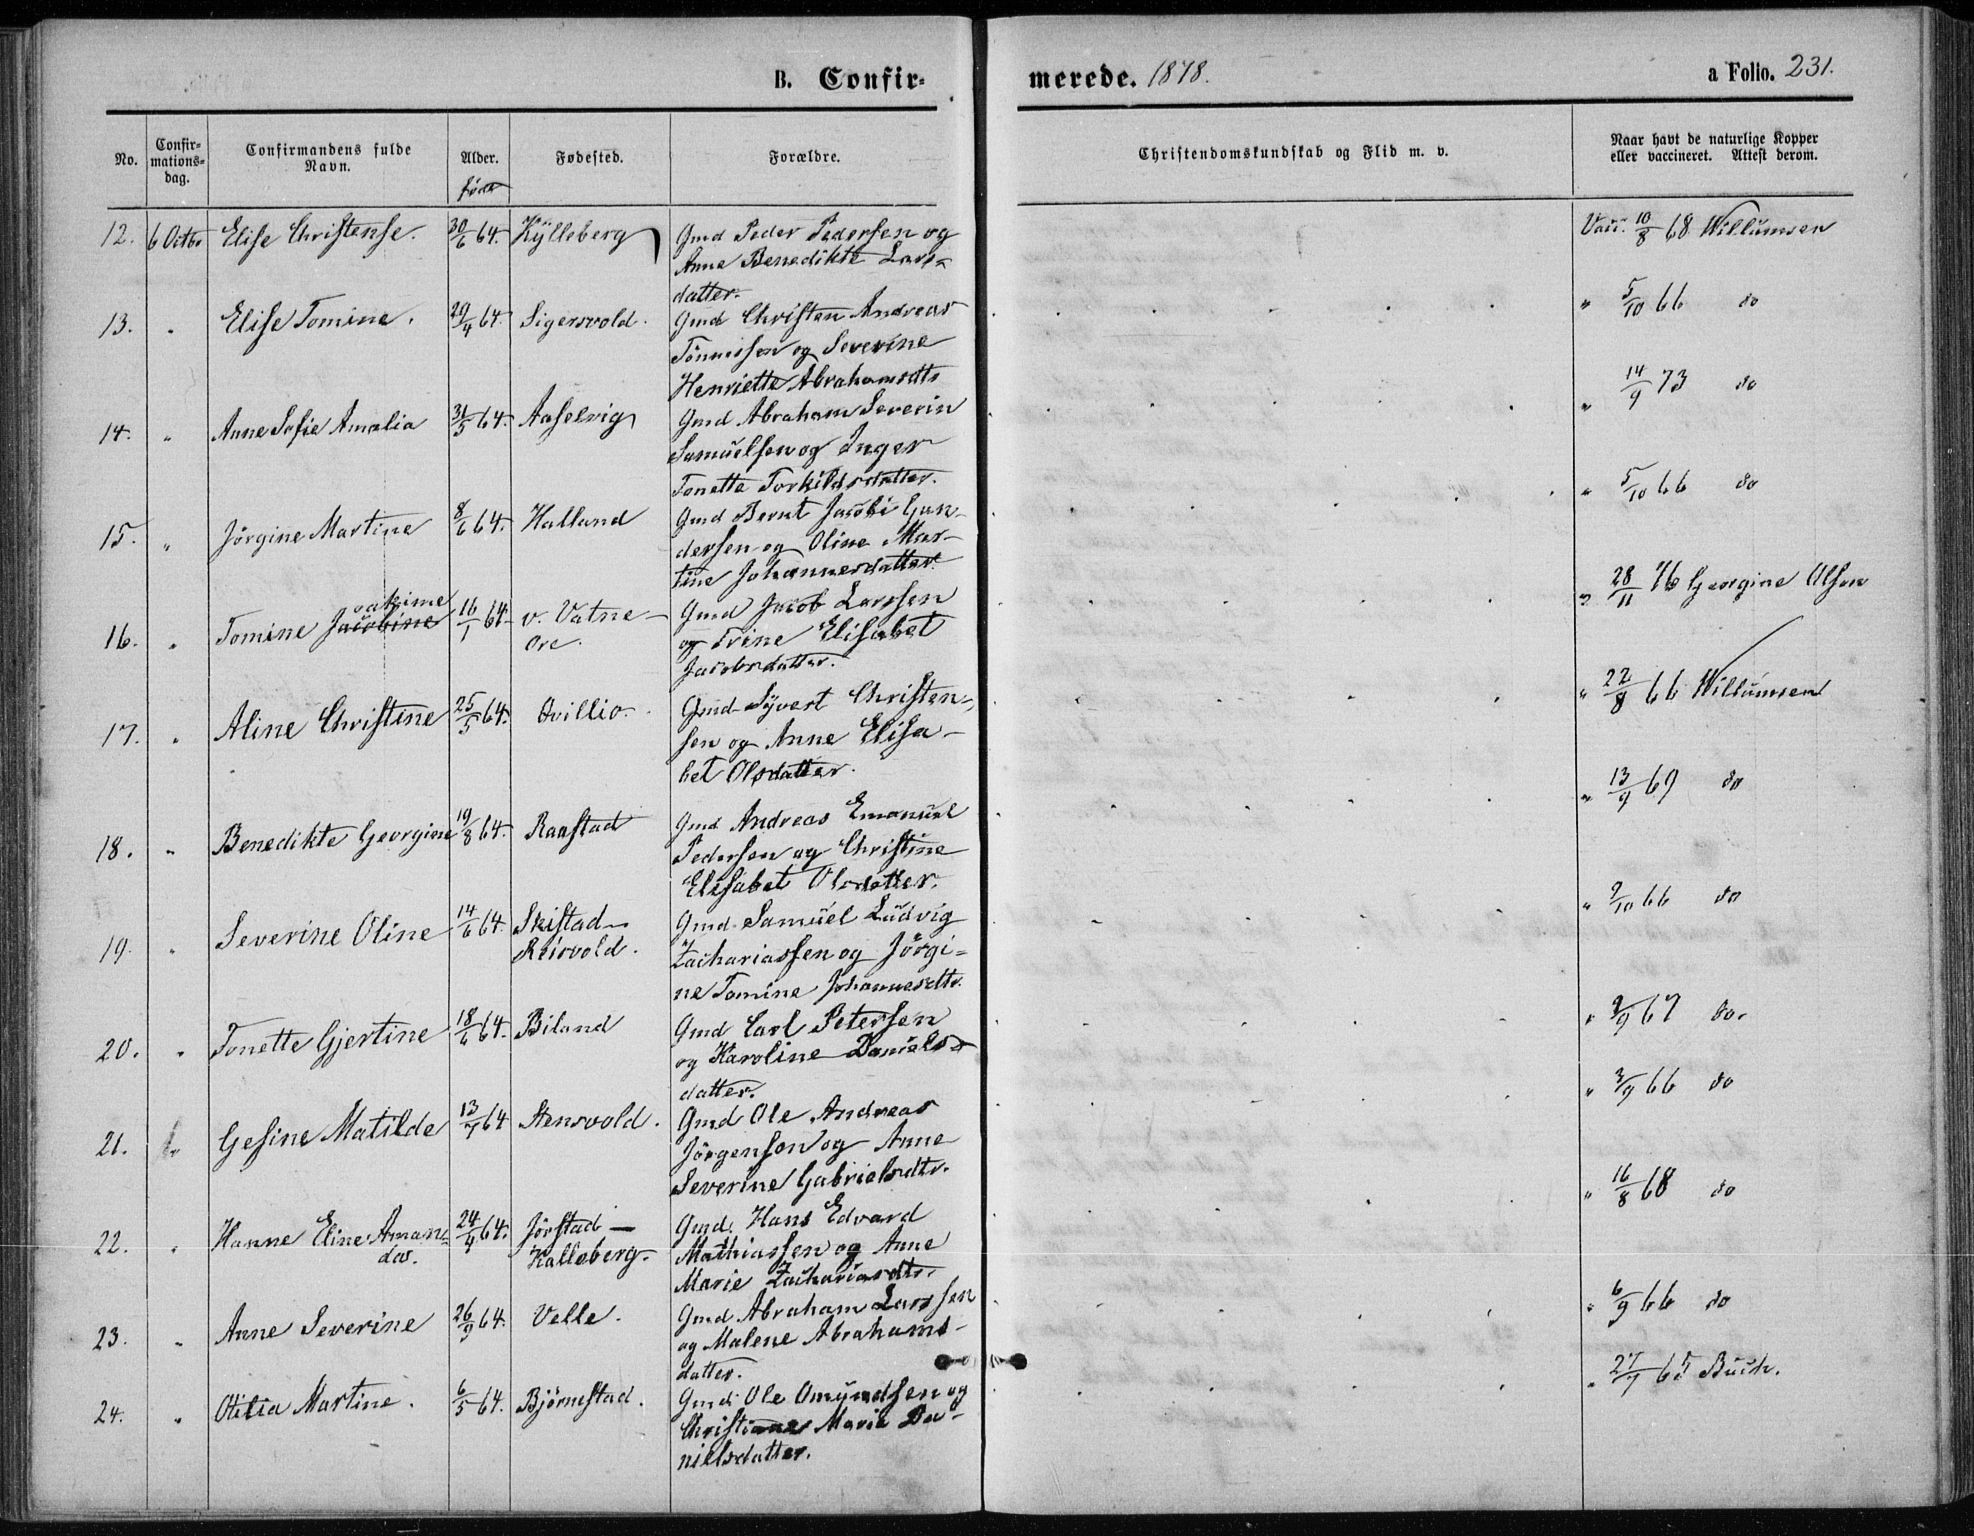 B. Confir-
merede. 1878.
a Folio. 231.
No.
Confir-
mations-
dag.
Confirmandens fulde
Navn.
Alder.
født
Fødested.
Forældre.
Christendomskundskab og Flid m. v.
Naar havt de naturlige Kopper
eller vaccineret. Attest derom.
12. 6 Octbr Elise Christense. 30/6 64. Kylleberg Gmd Peder Pedersen og Vacc. 10/8 68 Willumsen
Anne Benedikte Lars-
datter.
13. " Elise Tomine. 29/4 64. Sigersvold. Gmd Christen Andreas " 5/10 66 do
Tönnessen og Severine
Henriette Abrahamsdtr
14. " Anne Sofie Amalia 31/5 64. Aaselvig Gmd Abraham Severin " 14/9 73 do
Samuelsen og Inger
Tonette Torkildsdatter.
15. " Jörgine Martine 8/6 64. Halland Gmd Bernt Jacobi Gun- " 5/10 66 do
dersen og Oline Mar-
tine Johannesdatter
16. " Tomine Jacobine oakime 16/1 64. v. Vatne- Gmd Jacob Larssen " 28/11 76 Georgine Olsen
öre. og Trine Elisabet
Jacobsdatter.
17. " Aline Christine 25/5 64. Qvillio. Gmd Syvert Christen- " 22/8 66 Willumsen
sen og Anne Elisa-
bet Olsdatter.
18. " Benedikte Georgine 19/8 64. Raastad Gmd Andreas Emanuel " 13/9 69 do
Pedersen og Christine
Elisabet Olsdatter.
19. " Severine Oline 14/6 64. Skistad- Gmd Samuel Ludvig " 9/10 66 do
Reisvold. Zachariassen og Jörgi-
ne Tomine Johannesdtr.
20. " Tonette Gjertine 18/6 64. Biland Gmd Carl Petersen " 3/9 67 do.
og Karoline Daniels-
datter.
21. " Gesine Matilde 13/7 64 Stensvold. Gmd Ole Andreas " 3/9 66 do
Jörgensen og Anne
Severine Gabrielsdtr.
22. " Hanne Eline Aman- 24/4 64. Jörstad- Gmd. Hans Edvard " 16/8 68 do
da. Kalleberg. Mathiassen og Anne
Marie Zachariasdtr.
23. " Anne Severine 26/9 64. Velle. Gmd Abraham Larssen " 6/9 66 do
og Malene Abrahams-
datter.
24. " Otilia Martine. 6/5 64. Björnestad. Gmd Ole Omundsen og " 27/7 65 Buch.
Christiane Marie Da-
nielsdatter.